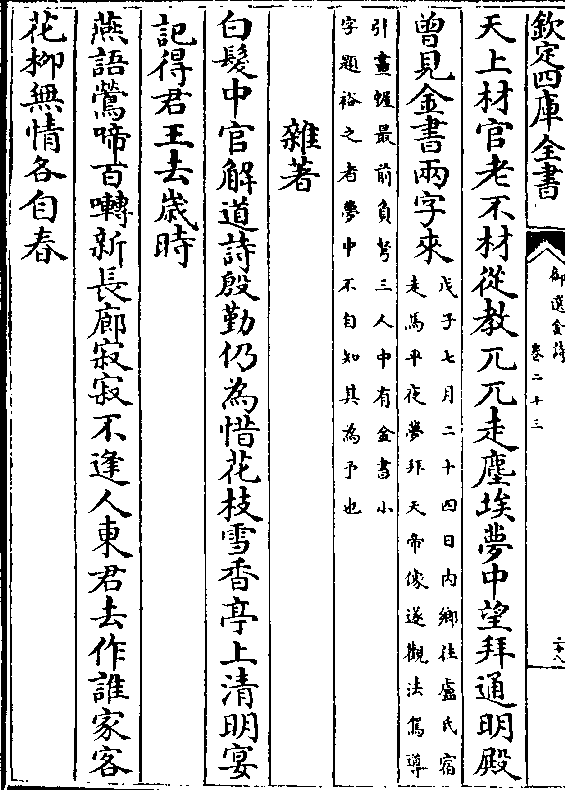 欽定四庫全書
御選金詩
卷二十三
二十八
天上材官老不材從教兀兀走塵埃夢中望拜通明殿
曾見金書兩字來
戊子七月二十四日内鄉往盧氏宿
走馬平夜夢拜天帝像遂觀法駕導
引畫幄最前負弩三人中有金書小
字題裕之者夢中不自知其為予也
雜著
白髮中官解道詩殷勤仍為惜花枝雪香亭上清明宴
記得君王去歲時
燕語鶯啼百囀新長廊寂寂不逢人東君去作誰家客
花柳無情各自春